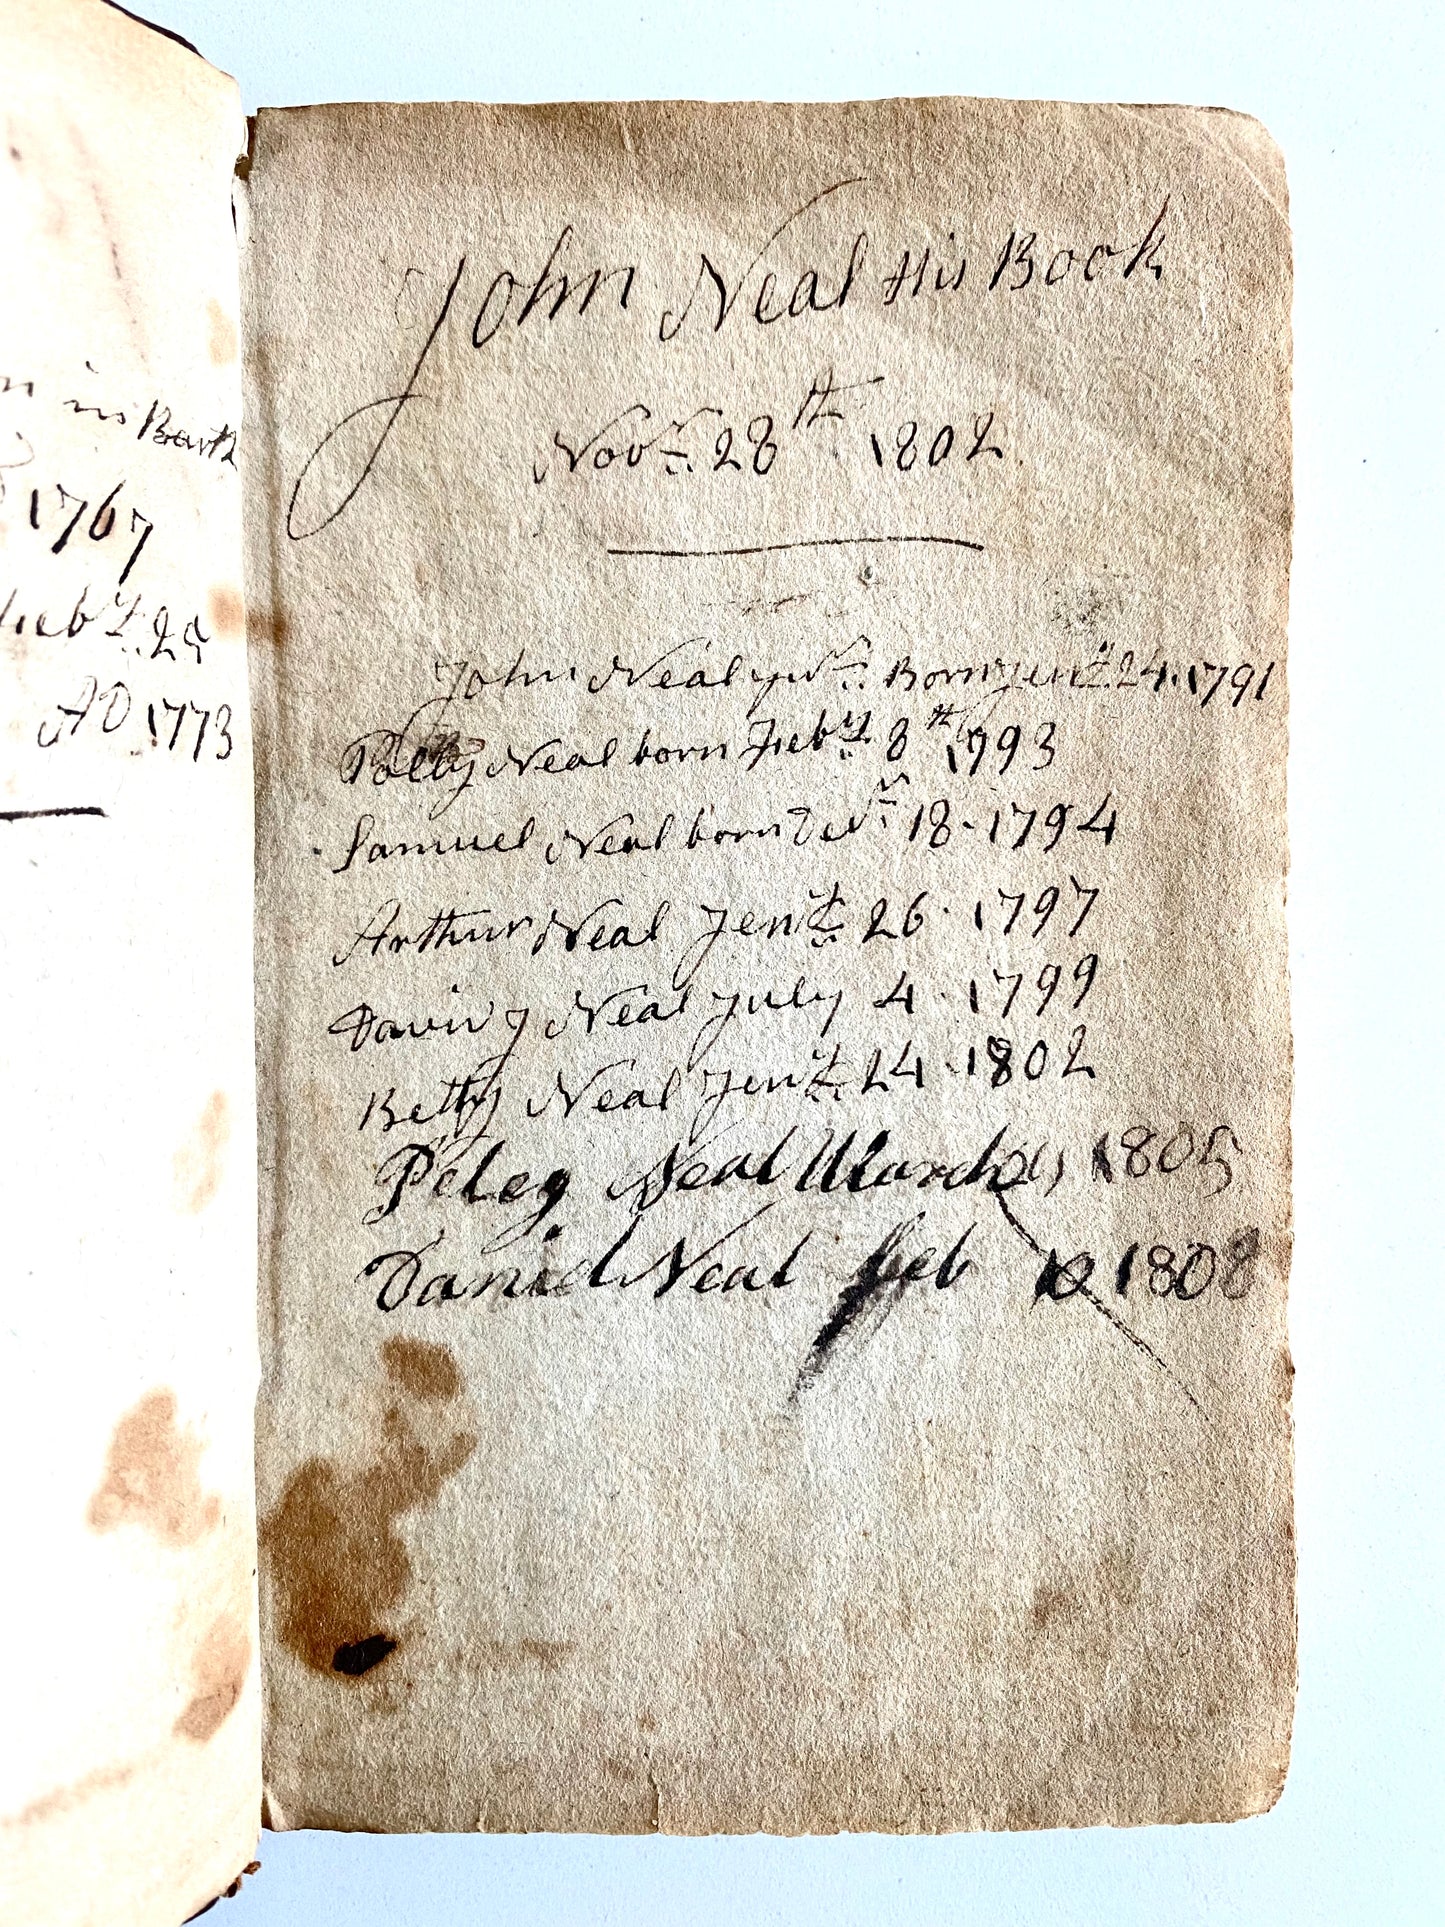 n in Barth
1767
Feby 25
AD 1773
John Neal His Book
Novr 28th 1802
John Neal junr Born Jenry 24. 1791
Polly Neal born Feby 8th 1793
Samuel Neal born Decr 18. 1794
Arthur Neal Jenry 26. 1797
David J Neal July 4. 1799
Betty Neal Jenry 24. 1802
Peleg Neal March 1805
Daniel Neal feb 1808